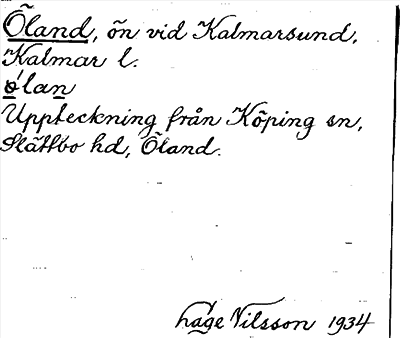 Öland, ön vid Kalmarsund,
Kalmar l.
ǿlan
Uppteckning från Köping sn,
Slättbo hd, Öland.
Lage Nilsson 1934